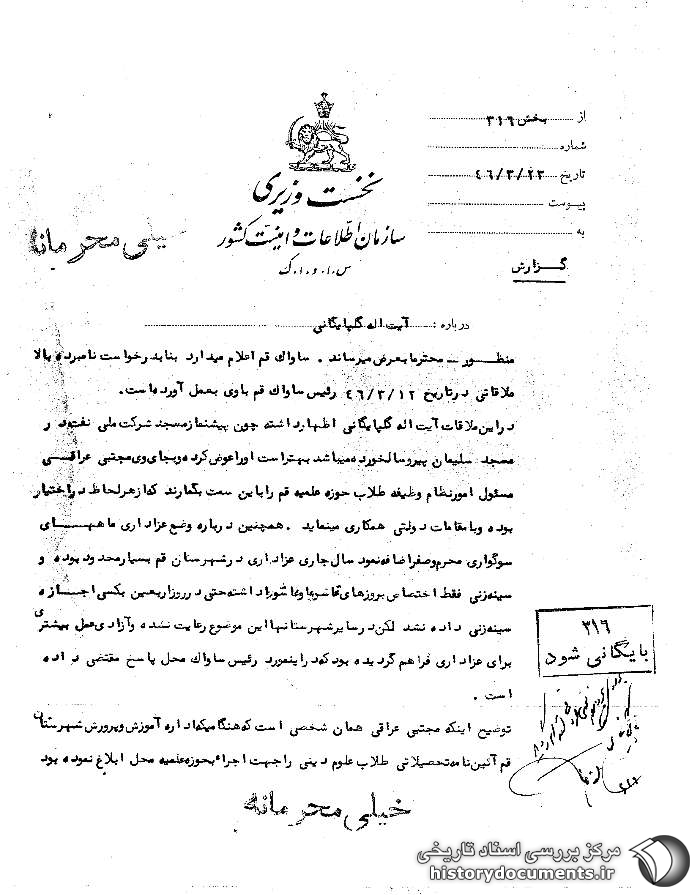 از بخش ۳۱۶
شماره
تاریخ ۴۶/۳/۲۳
پیوست
به
نخست وزیری
سازمان اطلاعات و امنیت کشور
س.ا.و.ا.ک
خیلی محرمانه
گزارش
درباره : آیت اله گلپایگانی
منظور ــ محترما بعرض میرساند . ساواک قم اعلام میدارد بنا بدرخواست نامبرده بالا
ملاقاتی در تاریخ ۴۶/۳/۱۲ رئیس ساواک قم باوی بعمل آورده است.
در این ملاقات آیت اله گلپایگانی اظهار داشته چون پیشنماز مسجد شرکت ملی نفت در
مسجد سلیمان پیر و سالخورده میباشد بهتر است اورا عوض کرده و بجای وی مجتبی عراقی
مسئول امور نظام وظیفه طلاب حوزه علمیه قم را باین سمت بگمارند که از هر لحاظ در اختیار
بوده و با مقامات دولتی همکاری مینماید . همچنین درباره وضع عزاداری ماههای
سوگواری محرم و صفر اضافه نمود سال جاری عزاداری در شهرستان قم بسیار محدود بوده و
سینه زنی فقط اختصاص بروزهای تاسوعا و عاشورا داشته حتی در روز اربعین بکسی اجازه
سینه زنی داده نشد لکن در سایر شهرستانها این موضوع رعایت نشده و آزادی عمل بیشتری
برای عزاداری فراهم گردیده بود که در اینمورد رئیس ساواک محل پاسخ مقتضی داده
است .
توضیح اینکه مجتبی عراقی همان شخصی است که هنگامیکه اداره آموزش و پرورش شهرستان
قم آئین نامه تحصیلاتی طلاب علوم دینی را جهت اجراء بحوزه علمیه محل ابلاغ نموده بود
۳۱۶
بایگانی شود
خیلی محرمانه
مرکز بررسی اسناد تاریخی
historydocuments.ir